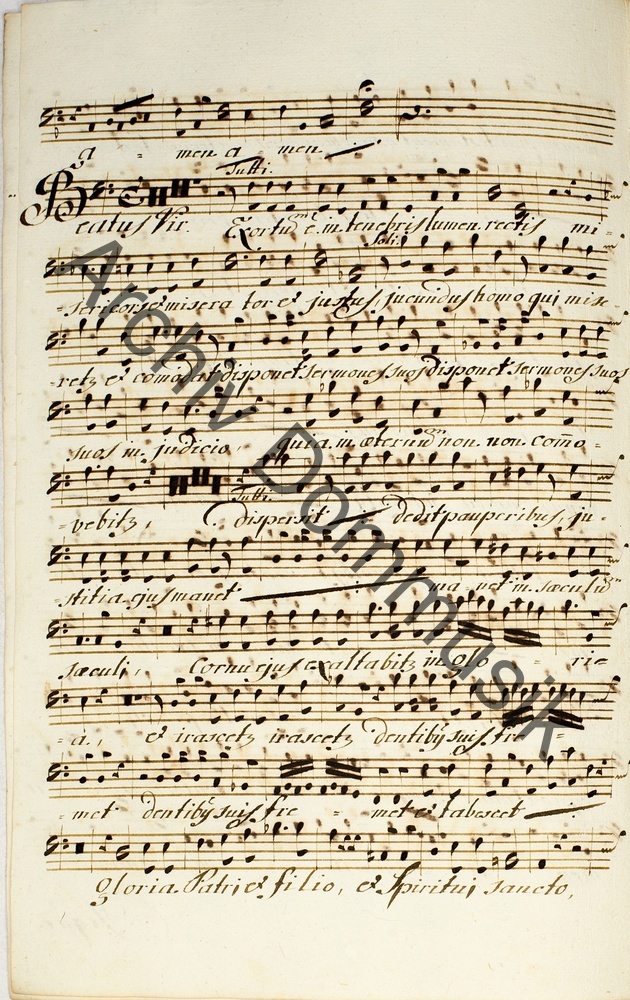 a - men a - men
Tutti.
Beatus Vir. Exortũ e. in tenebris lumen rectis mi =
Soli
= sericors et misera tor et justus, jucundus homo qui mise
= retz et comodat disponet sermones suos disponet sermones suos
suos in judicio, quia in æternũ non non como =
Tutti
= vebitz, dispersit dedit pauperibus, ju =
= stitia ejus manet ma - net in sæculũ
sæculi, Cornu ejus exaltabitz in glo - rie
= a., et irascetz irascetz dentibȝ suis fre =
= met dentibȝ suis fre = met et tabescet
Gloria Patri et filio, et Spiritui sancto,
Archiv Dommusik